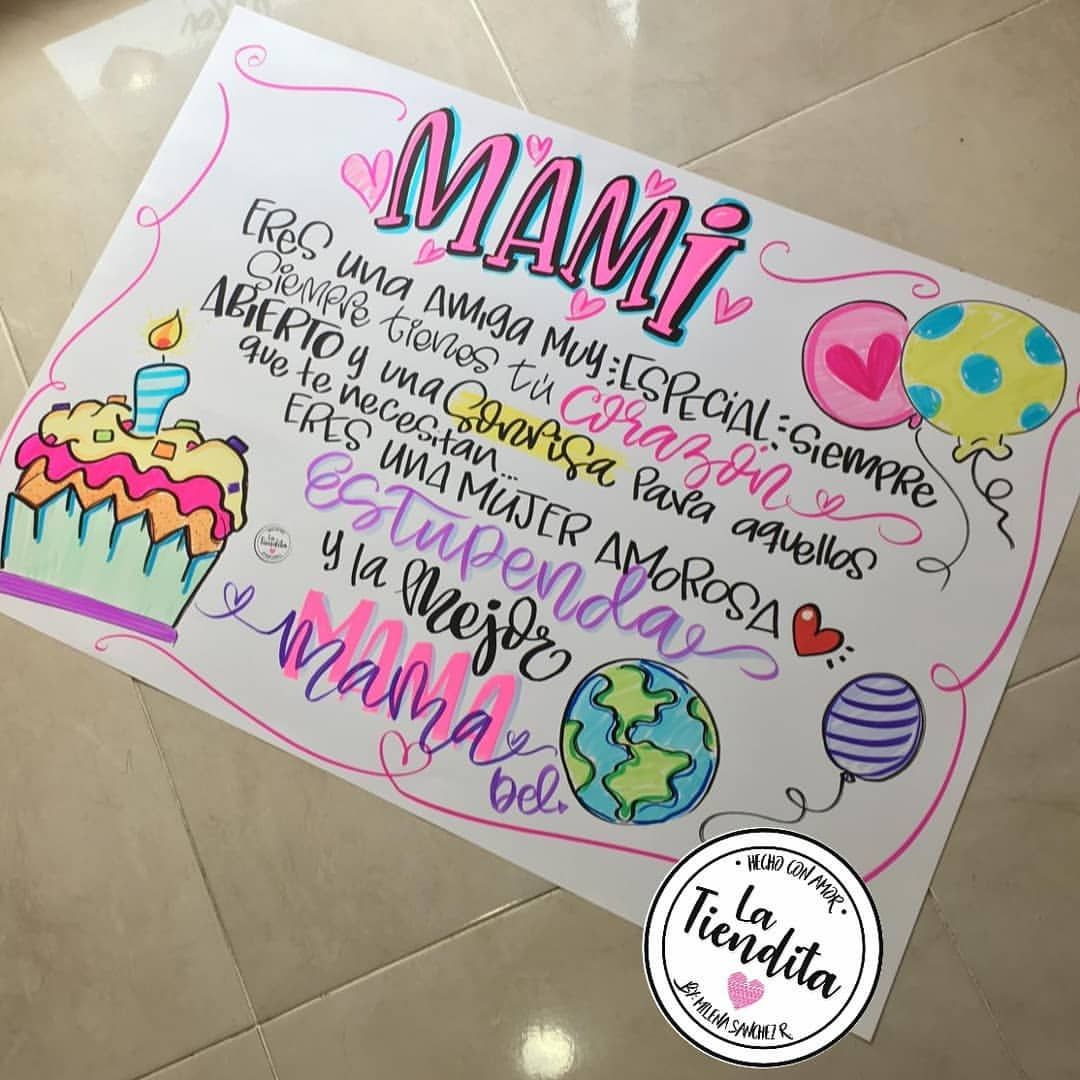 MAMi
ERes una Amiga Muy ESPECiAL: Siempre
Siempre tienes tú Corazón
ABIERTO y una Sonrisa Para aquellos
que te necesitan...
ERES UNA MUJER AMOROSA
Estupenda
y la Mejor
MAMA
mama
Del
La Tiendita
• HECHO CON AMOR •
La
Tiendita
BY: MILENA SANCHEZ R.